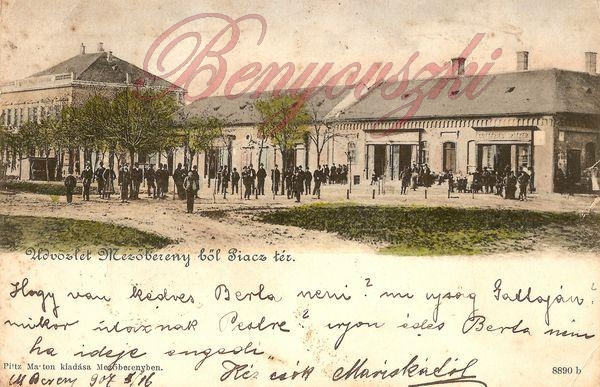 Benyovszki
Üdvözlet Mezőberény ből Piacz tér.
Hogy van kedves Berta neni? mi ujság Gattaján?
mikor utaznak Pestre? irjon édes Berta néni
ha ideje engedi
Kéz csók Mariskától
Pittz Marton kiadása Mezőberényben.
M Bereny 907 3/16
8890 b